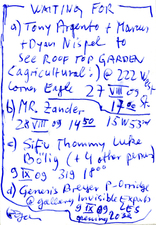 WAITING FOR
a) Tony Argento + Marcus
+ Dyan Nispel to
SEE ROOF TOP GARDEN
(agricultural!) @ 222
corner Eagle 27 VIII 09
b) MR. Zander 17 00 St.
28 VIII 09 14 50 15 W 53
c) Sifu Thommy Luke
Böhlig (+ 4 other person)
9 IX 09 319 18 00
d) Genesis Breyer P-Orridge
@ gallery Invisible Exports
9 IX 09 LES
opening 20